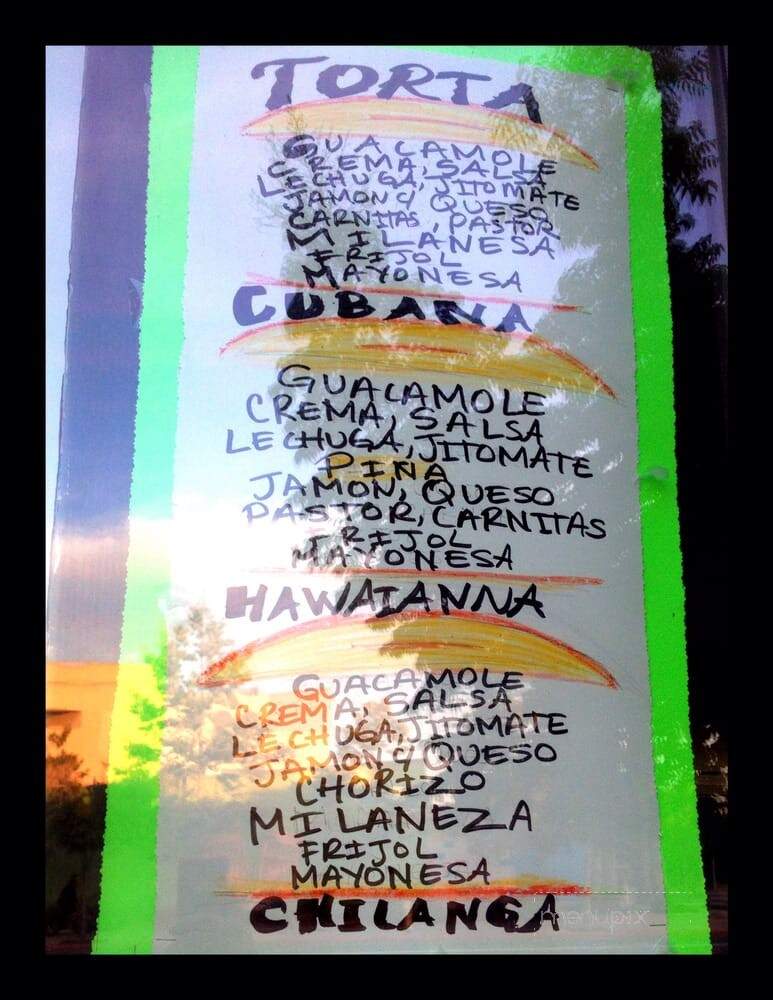 TORTA
GUACAMOLE
CREMA, SALSA
LECHUGA, JITOMATE
JAMON Y QUESO
CARNITAS, PASTOR
MILANESA
FRIJOL
MAYONESA
CUBANA
GUACAMOLE
CREMA, SALSA
LECHUGA, JITOMATE
PIÑA
JAMON, QUESO
PASTOR, CARNITAS
FRIJOL
MAYONESA
HAWAIANNA
GUACAMOLE
CREMA, SALSA
LECHUGA, JITOMATE
JAMON Y QUESO
CHORIZO
MILANEZA
FRIJOL
MAYONESA
CHILANGA
menupix